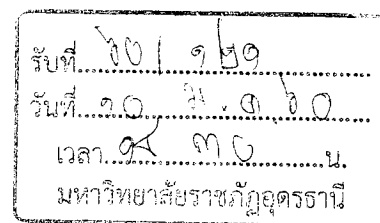 รับที่ ๖๐ / ๑๒๑
วันที่ ๑๐ ม.ค ๖๐
เวลา น.
มหาวิทยาลัยราชภัฏอุดรธานี